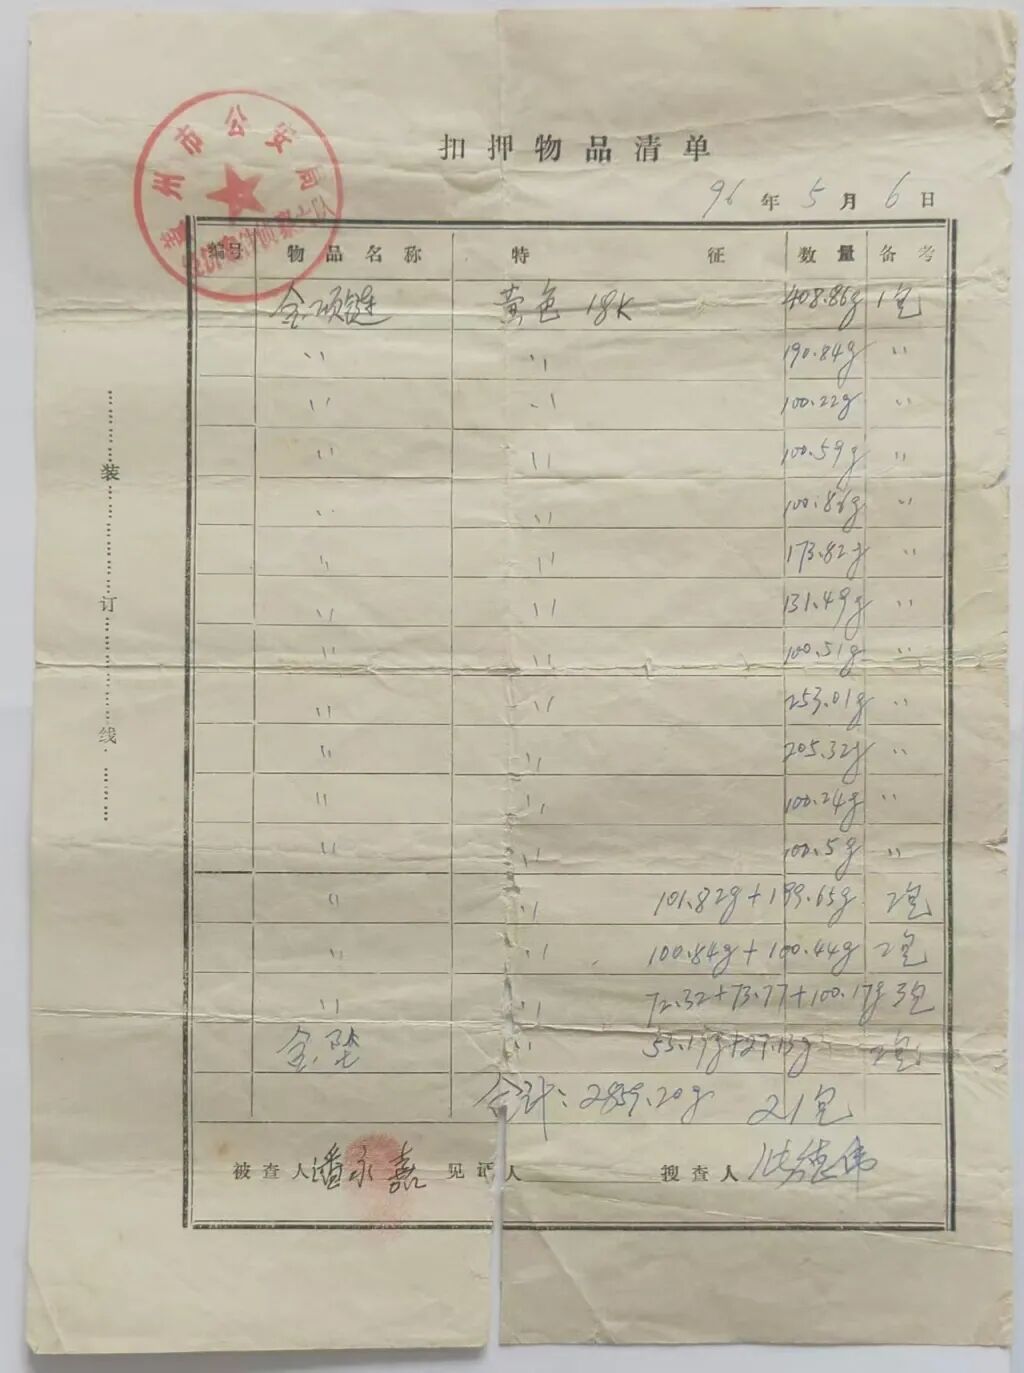 扣押物品清单
96年5月6日
州市公安局
编号 物品名称 特征 数量 备考
金项链 黄色 18K 408.86g 1包
〃 〃 190.84g 〃
〃 〃 100.22g 〃
〃 〃 100.59g 〃
〃 〃 100.86g 〃
〃 〃 173.82g 〃
〃 〃 131.49g 〃
〃 〃 100.51g 〃
〃 〃 253.01g 〃
〃 〃 205.32g 〃
〃 〃 100.24g 〃
〃 〃 100.5g 〃
〃 〃 101.82g+199.65g 2包
〃 〃 100.84g+100.44g 2包
〃 〃 72.32+73.77+100.17g 3包
金坠 〃 2包
合计:2859.20g 21包
被查人 潘永嘉 见证人 搜查人
装订线